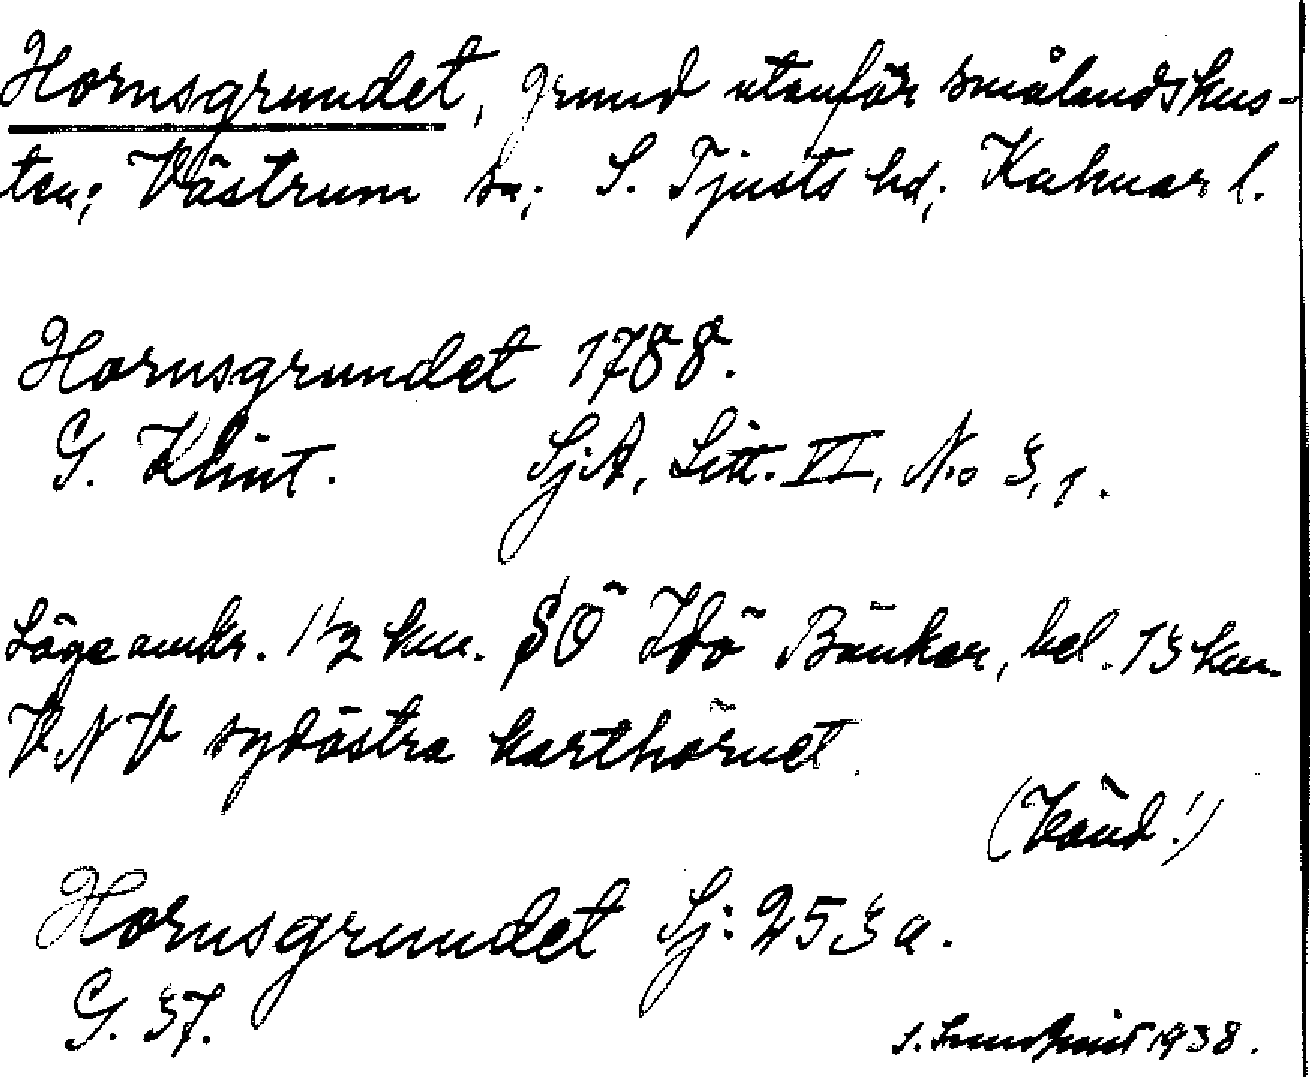 Hornsgrundet, grund utanför smålandskus-
ten; Västrum sn; S. Tjusts hd; Kalmar l.
Hornsgrundet 1788.
G. Klint. SjA, Litt. VI, No 3, 1.
Läge omkr. 1 1/2 km. SÖ Idö Bänkar, bel. 13 km.
VNV sydöstra karthörnet.
(Vänd!)
Hornsgrundet Sj: 253a.
G. 37.
S. 1938.